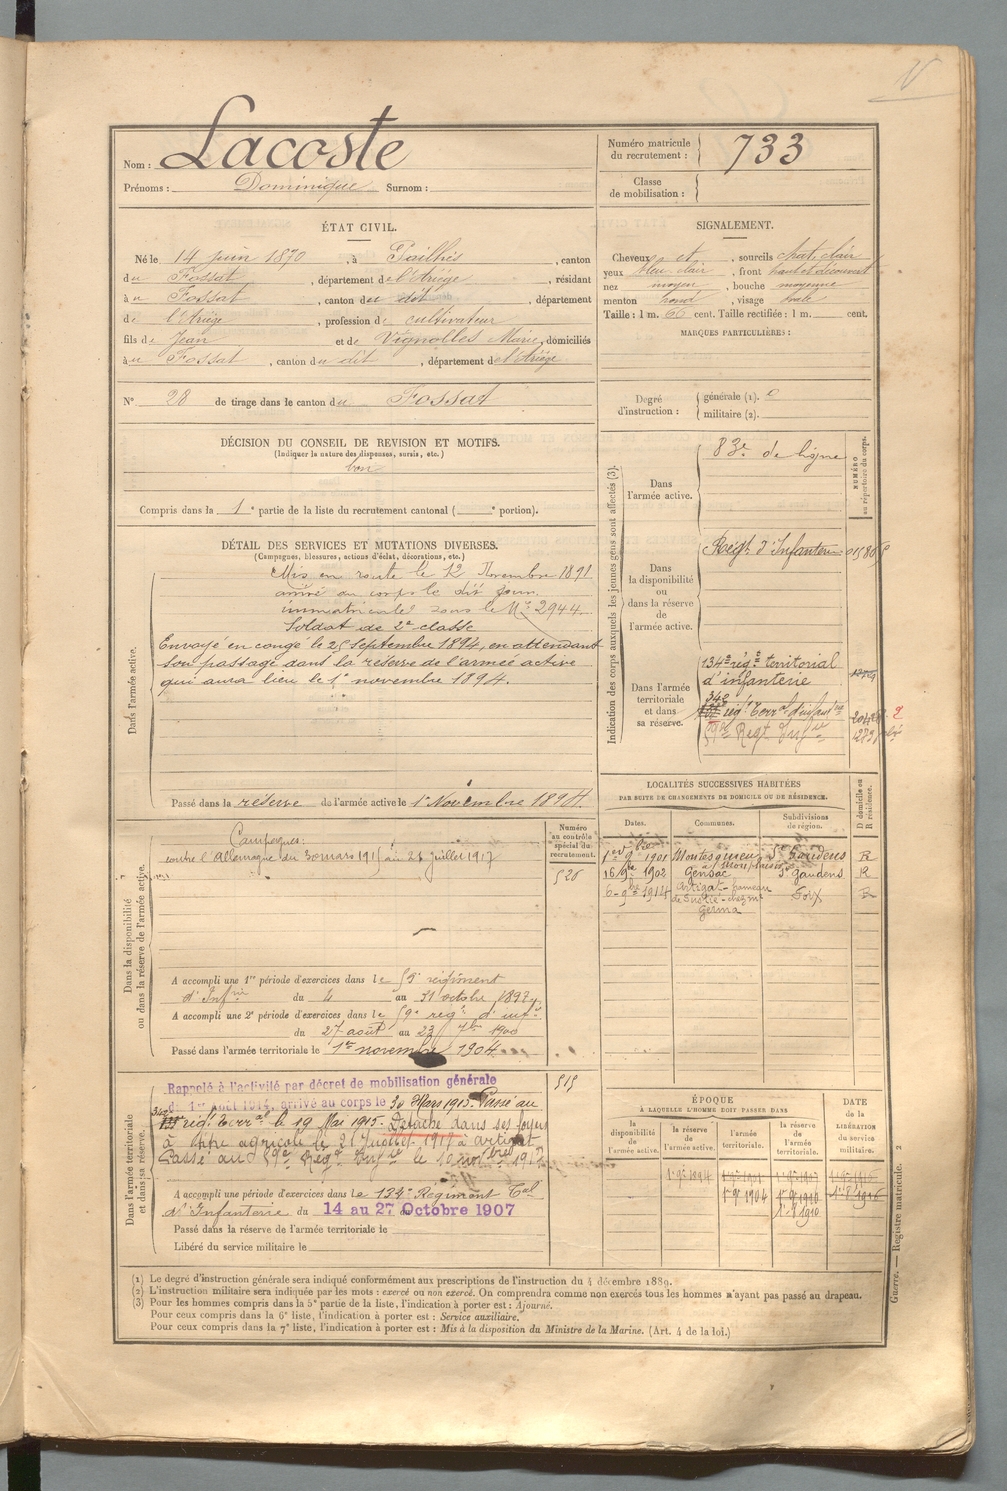 Nom : Lacoste
Prénoms : Dominique Surnom :
Numéro matricule du recrutement : 733
Classe de mobilisation :
ÉTAT CIVIL.
Né le 14 juin 1870, à Pailhès, canton
du Fossat, département de l'Ariège, résidant
à u Fossat, canton du dit, département
de l'Ariège, profession de cultivateur
fils de Jean et de Vignolles Marie, domiciliés
à u Fossat, canton du dit, département de l'Ariège
N° 28 de tirage dans le canton du Fossat
SIGNALEMENT.
Cheveux et, sourcils chat. clair
yeux bleu clair, front haut et découvert
nez moyen, bouche moyenne
menton rond, visage ovale
Taille : 1 m. 66 cent. Taille rectifiée : 1 m. cent.
MARQUES PARTICULIÈRES :
Degré d'instruction : générale (1).
militaire (2).
DÉCISION DU CONSEIL DE REVISION ET MOTIFS.
(Indiquer la nature des dispenses, sursis, etc.)
bon
Compris dans la 1e partie de la liste du recrutement cantonal ( e portion).
DÉTAIL DES SERVICES ET MUTATIONS DIVERSES.
(Campagnes, blessures, actions d'éclat, décorations, etc.)
Dans l'armée active.
Mis en route le 12 Novembre 1891
arrivé au corps le dit jour.
immatriculé sous le N° 2944.
Soldat de 2e classe
Envoyé en congé le 25 Septembre 1894, en attendant
son passage dans la réserve de l'armée active
qui aura lieu le 1er novembre 1894.
Passé dans la réserve de l'armée active le 1er Novembre 1894.
Indication des corps auxquels les jeunes gens sont affectés (3).
NUMÉRO au répertoire du corps.
Dans l'armée active.
83e de ligne
Dans la disponibilité ou dans la réserve de l'armée active.
Régt d'Infanterie
Dans l'armée territoriale et dans sa réserve.
134e régt territorial
d'infanterie
342
régt Terral d'infanrie
59e Regt Infie
LOCALITÉS SUCCESSIVES HABITÉES
PAR SUITE DE CHANGEMENTS DE DOMICILE OU DE RÉSIDENCE.
D domicile ou R résidence.
Dates. Communes. Subdivisions de région.
1901 Montesquieu St Gaudens R
16 9bre 1902 Gensac St Gaudens R
6-9bre 1914 Artigat - hameau Foix R
Dans la disponibilité ou dans la réserve de l'armée active.
Numéro au contrôle spécial du recrutement.
Campagnes :
contre l'Allemagne du 30 mars 1915 au 21 juillet 1917
520
A accompli une 1re période d'exercices dans le 59e régiment
d'Infrie du 4 au 31 octobre 1897.
A accompli une 2e période d'exercices dans le 59e régt d'infie
du 27 août au 23 7bre 1900
Passé dans l'armée territoriale le 1er novembre 1904
Dans l'armée territoriale et dans sa réserve.
515
Rappelé à l'activité par décret de mobilisation générale
du 1er Août 1914, arrivé au corps le 30 Mars 1915. Passé au
342 régt Terral le 19 Mai 1915. Détaché dans ses foyers
à titre agricole le 21 Juillet 1917 à Artigat.
Passé au 59e Régt Infie le 10 novbre 1917
A accompli une période d'exercices dans le 134e Régiment Tal
d'Infanterie du 14 au 27 Octobre 1907
Passé dans la réserve de l'armée territoriale le
Libéré du service militaire le
ÉPOQUE
À LAQUELLE L'HOMME DOIT PASSER DANS
la disponibilité de l'armée active. la réserve de l'armée active. l'armée territoriale. la réserve de l'armée territoriale.
DATE de la LIBÉRATION du service militaire.
1er 9bre 1894
1er 9bre 1904 1er 9bre 1910
1er 8bre 1910
(1) Le degré d'instruction générale sera indiqué conformément aux prescriptions de l'instruction du 4 décembre 1889.
(2) L'instruction militaire sera indiquée par les mots : exercé ou non exercé. On comprendra comme non exercés tous les hommes n'ayant pas passé au drapeau.
(3) Pour les hommes compris dans la 5e partie de la liste, l'indication à porter est : Ajourné.
Pour ceux compris dans la 6e liste, l'indication à porter est : Service auxiliaire.
Pour ceux compris dans la 7e liste, l'indication à porter est : Mis à la disposition du Ministre de la Marine. (Art. 4 de la loi.)
Guerre. — Registre matricule. 2